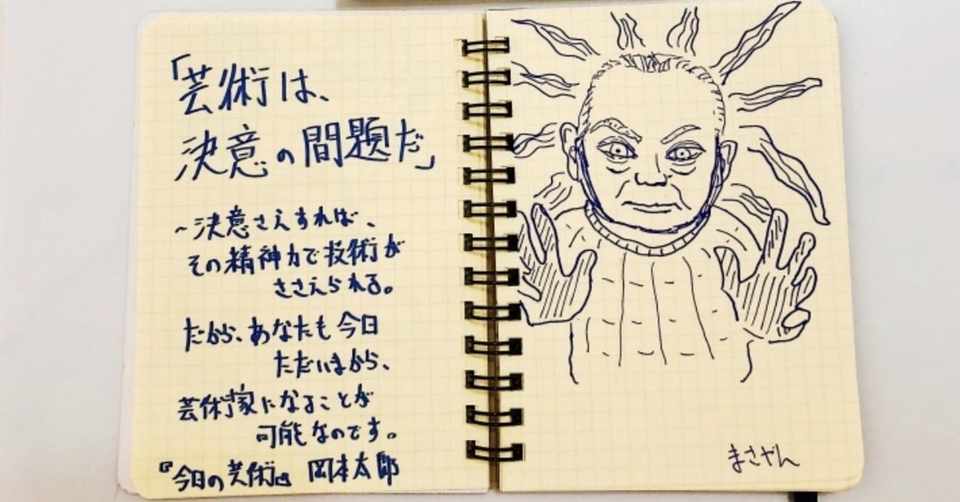 「芸術は、
決意の問題だ」
~決意さえすれば、
その精神力で技術が
ささえられる。
だから、あなたも今日
ただいまから、
芸術家になることが
可能なのです。
『今日の芸術』 岡本太郎
まさやん